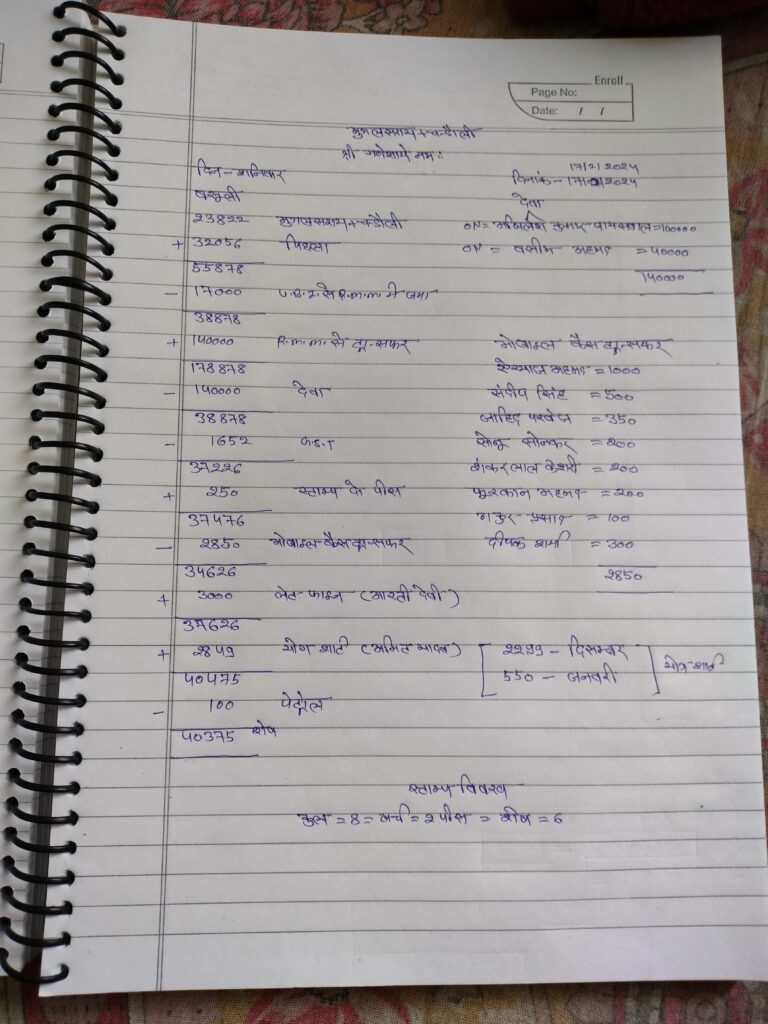 Enroll
Page No:
Date: / /
मुगलसराय + चन्दौली
श्री गणेशाये नमः
17/2/2024
दिन - शनिवार दिनांक - 17/02/2024
वसूली देवा
23822 मुगलसराय + चन्दौली ON = कुमार = 100000
+ 32056 पिछला ON = वसीम अहमद = 40000
55878 140000
- 17000 U.B.I. से R.M.M में जमा
38878
+ 140000 R.M.M. से ट्रान्सफर मोबाइल कैस ट्रान्सफर
178878 अहमद = 1000
- 140000 देवा संदीप सिंह = 500
38878 जाहिद परवेज = 350
- 1652 G.S.T सोनू सोनकर = 200
37226 शंकर लाल केशरी = 200
+ 250 स्टाम्प के पीस फुरकान अहमद = 200
37476 प्रसाद = 100
- 2850 मोबाइल कैस ट्रान्सफर दीपक शर्मा = 300
34626 2850
+ 3000 लेट फाइन (आरती देवी)
37626
+ 2849 (अमित यादव) 2299 - दिसम्बर
40475 550 - जनवरी
- 100 पेट्रोल
40375 शेष
स्टाम्प विवरण
कुल = 8 = खर्च = 2 पीस = शेष = 6